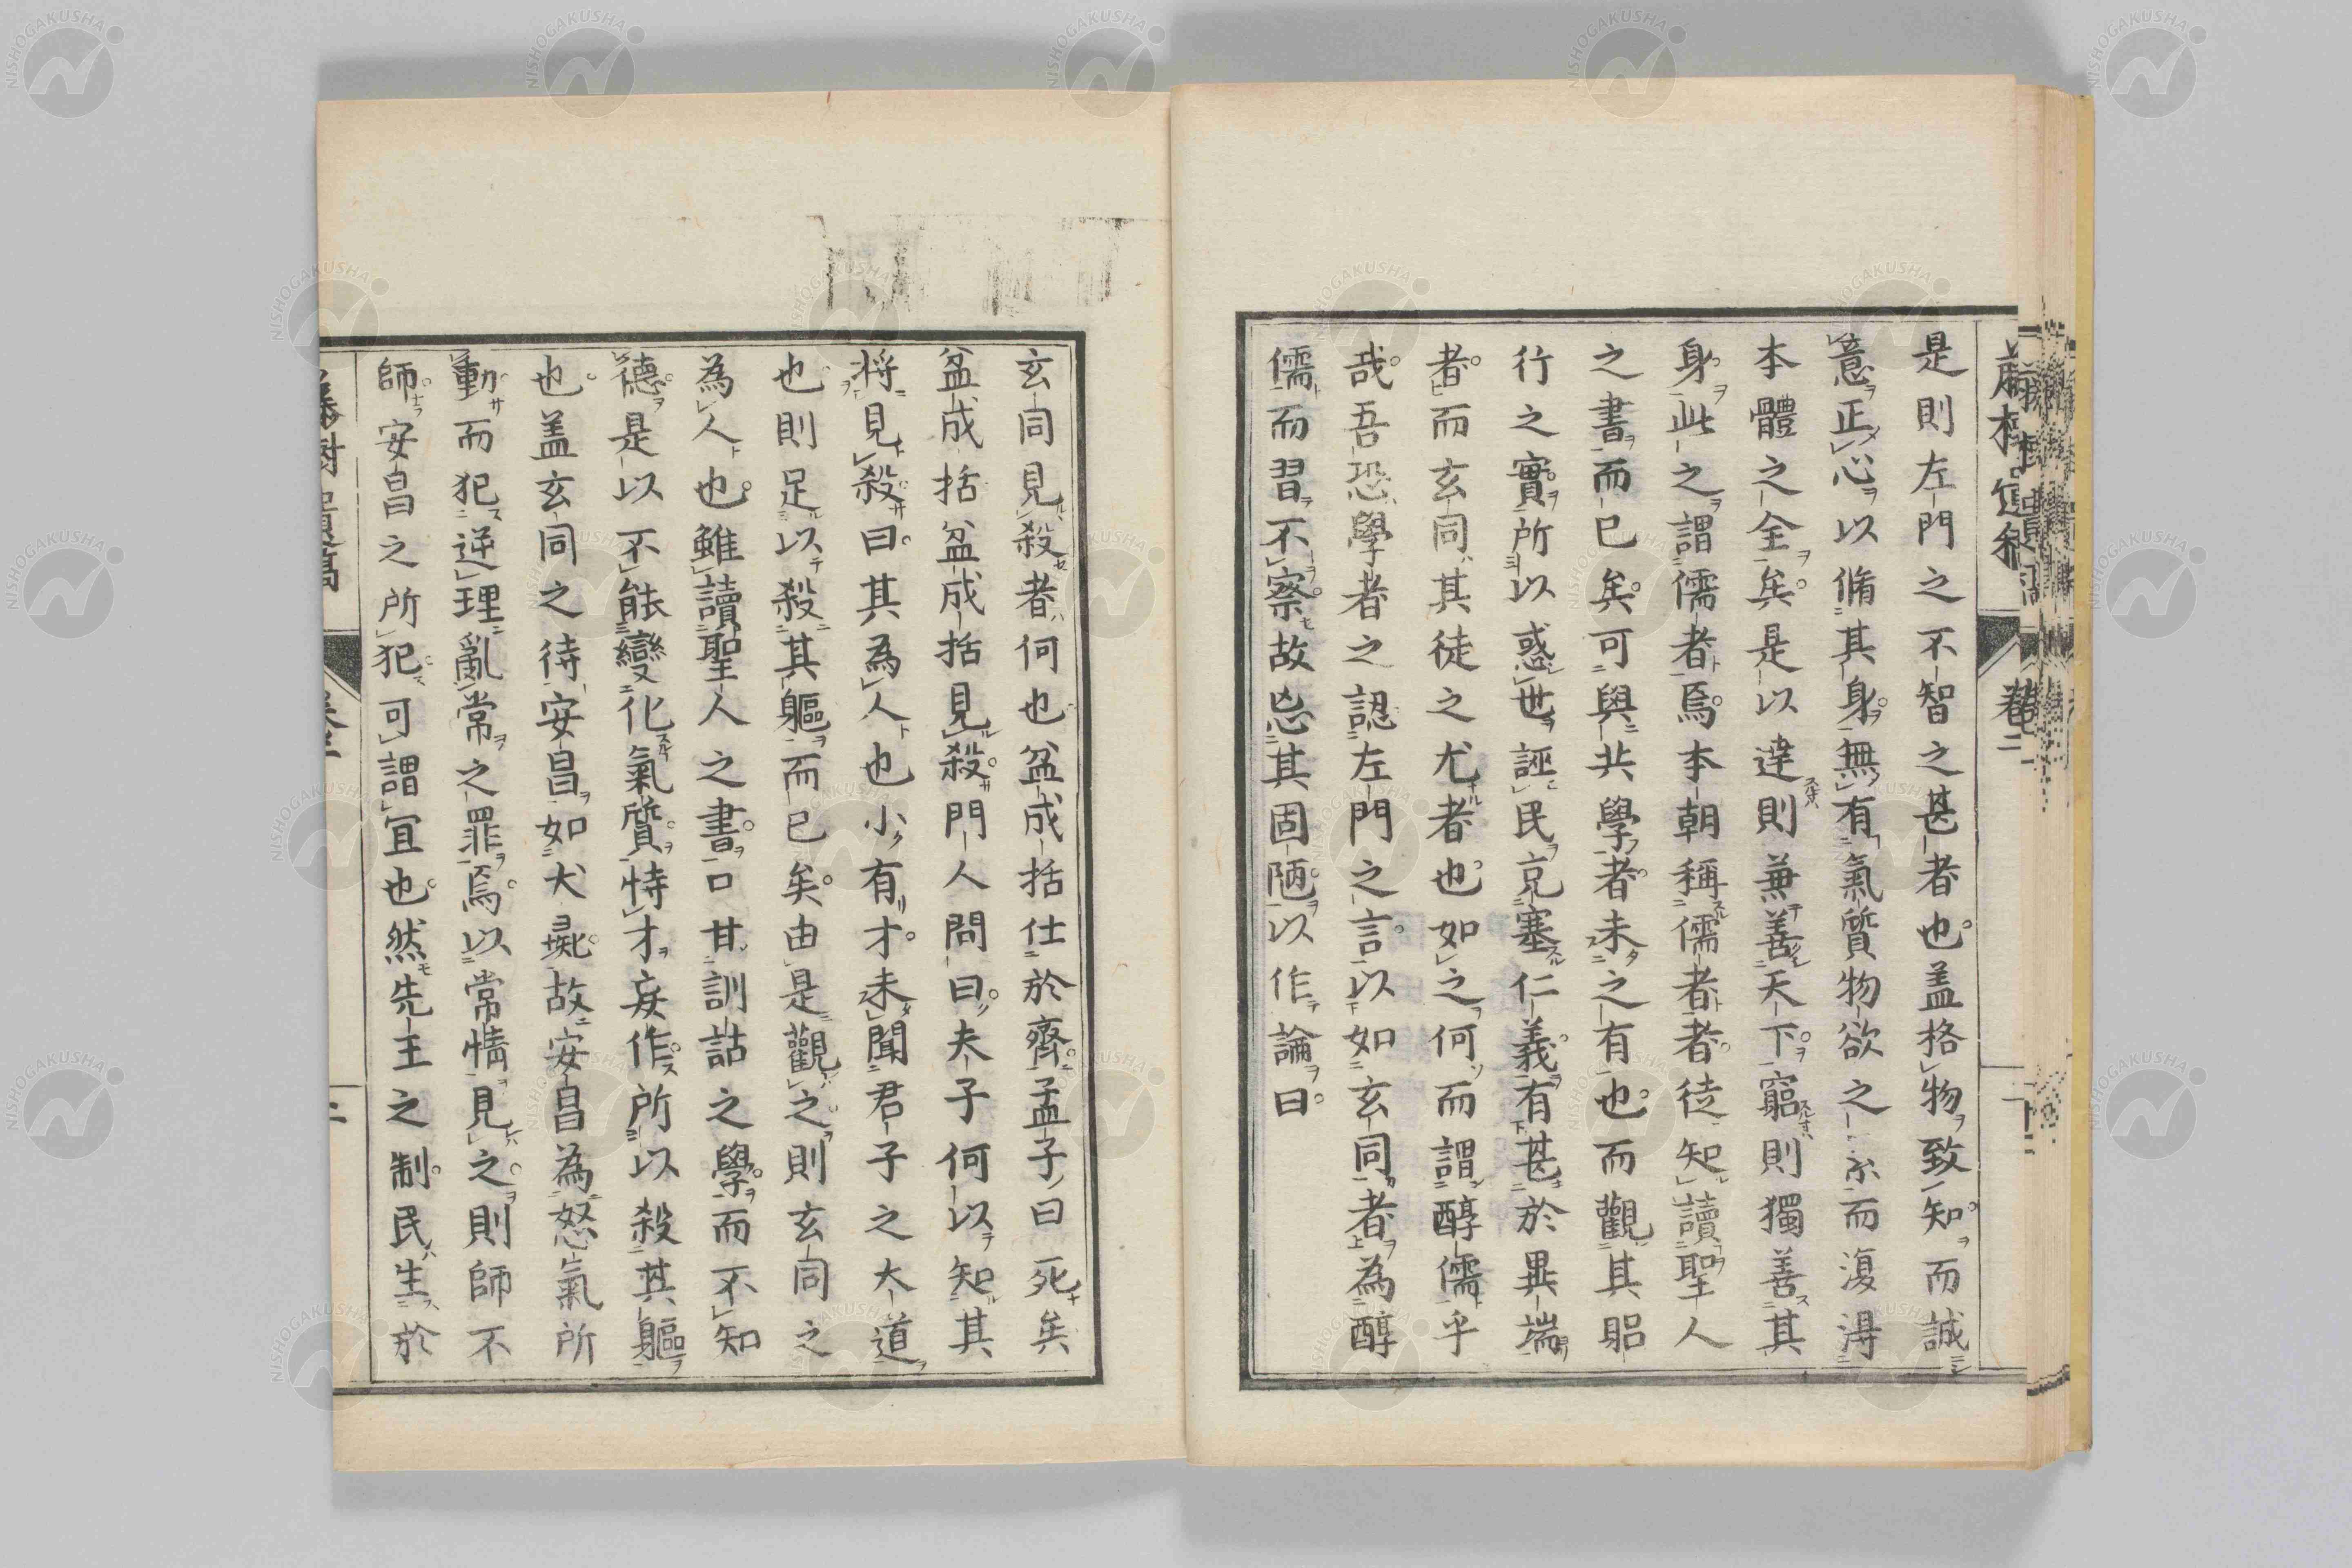 是則左門之不智之甚者也蓋格物致知而誠
意正心以脩其身無有氣質物欲之而復得
本體之全矣是以達則兼善天下窮則獨善其
身此之謂儒者焉本朝稱儒者者徒知讀聖人
之書而已矣可與共學者未之有也而觀其躬
行之實所以惑世誣民充塞仁義有甚於異端
者而玄同其徒之尤者也如之何而謂醇儒乎
哉吾恐學者之認左門之言以如玄同者為醇
儒而習不察故忘其固陋以作論曰
玄同見殺者何也盆成括仕於齊孟子曰死矣
盆成括盆成括見殺門人問曰夫子何以知其
將見殺曰其為人也小有才未聞君子之大道
也則足以殺其軀而已矣由是觀之則玄同之
為人也雖讀聖人之書口甘訓詁之學而不知
德是以不能變化氣質恃才妄作所以殺其軀
也蓋玄同之待安昌如犬彘故安昌為怒氣所
動而犯逆理亂常之罪焉以常情見之則師不
師安昌之所犯可謂宜也然先王之制民生於
卷二
NISHOGAKUSHA